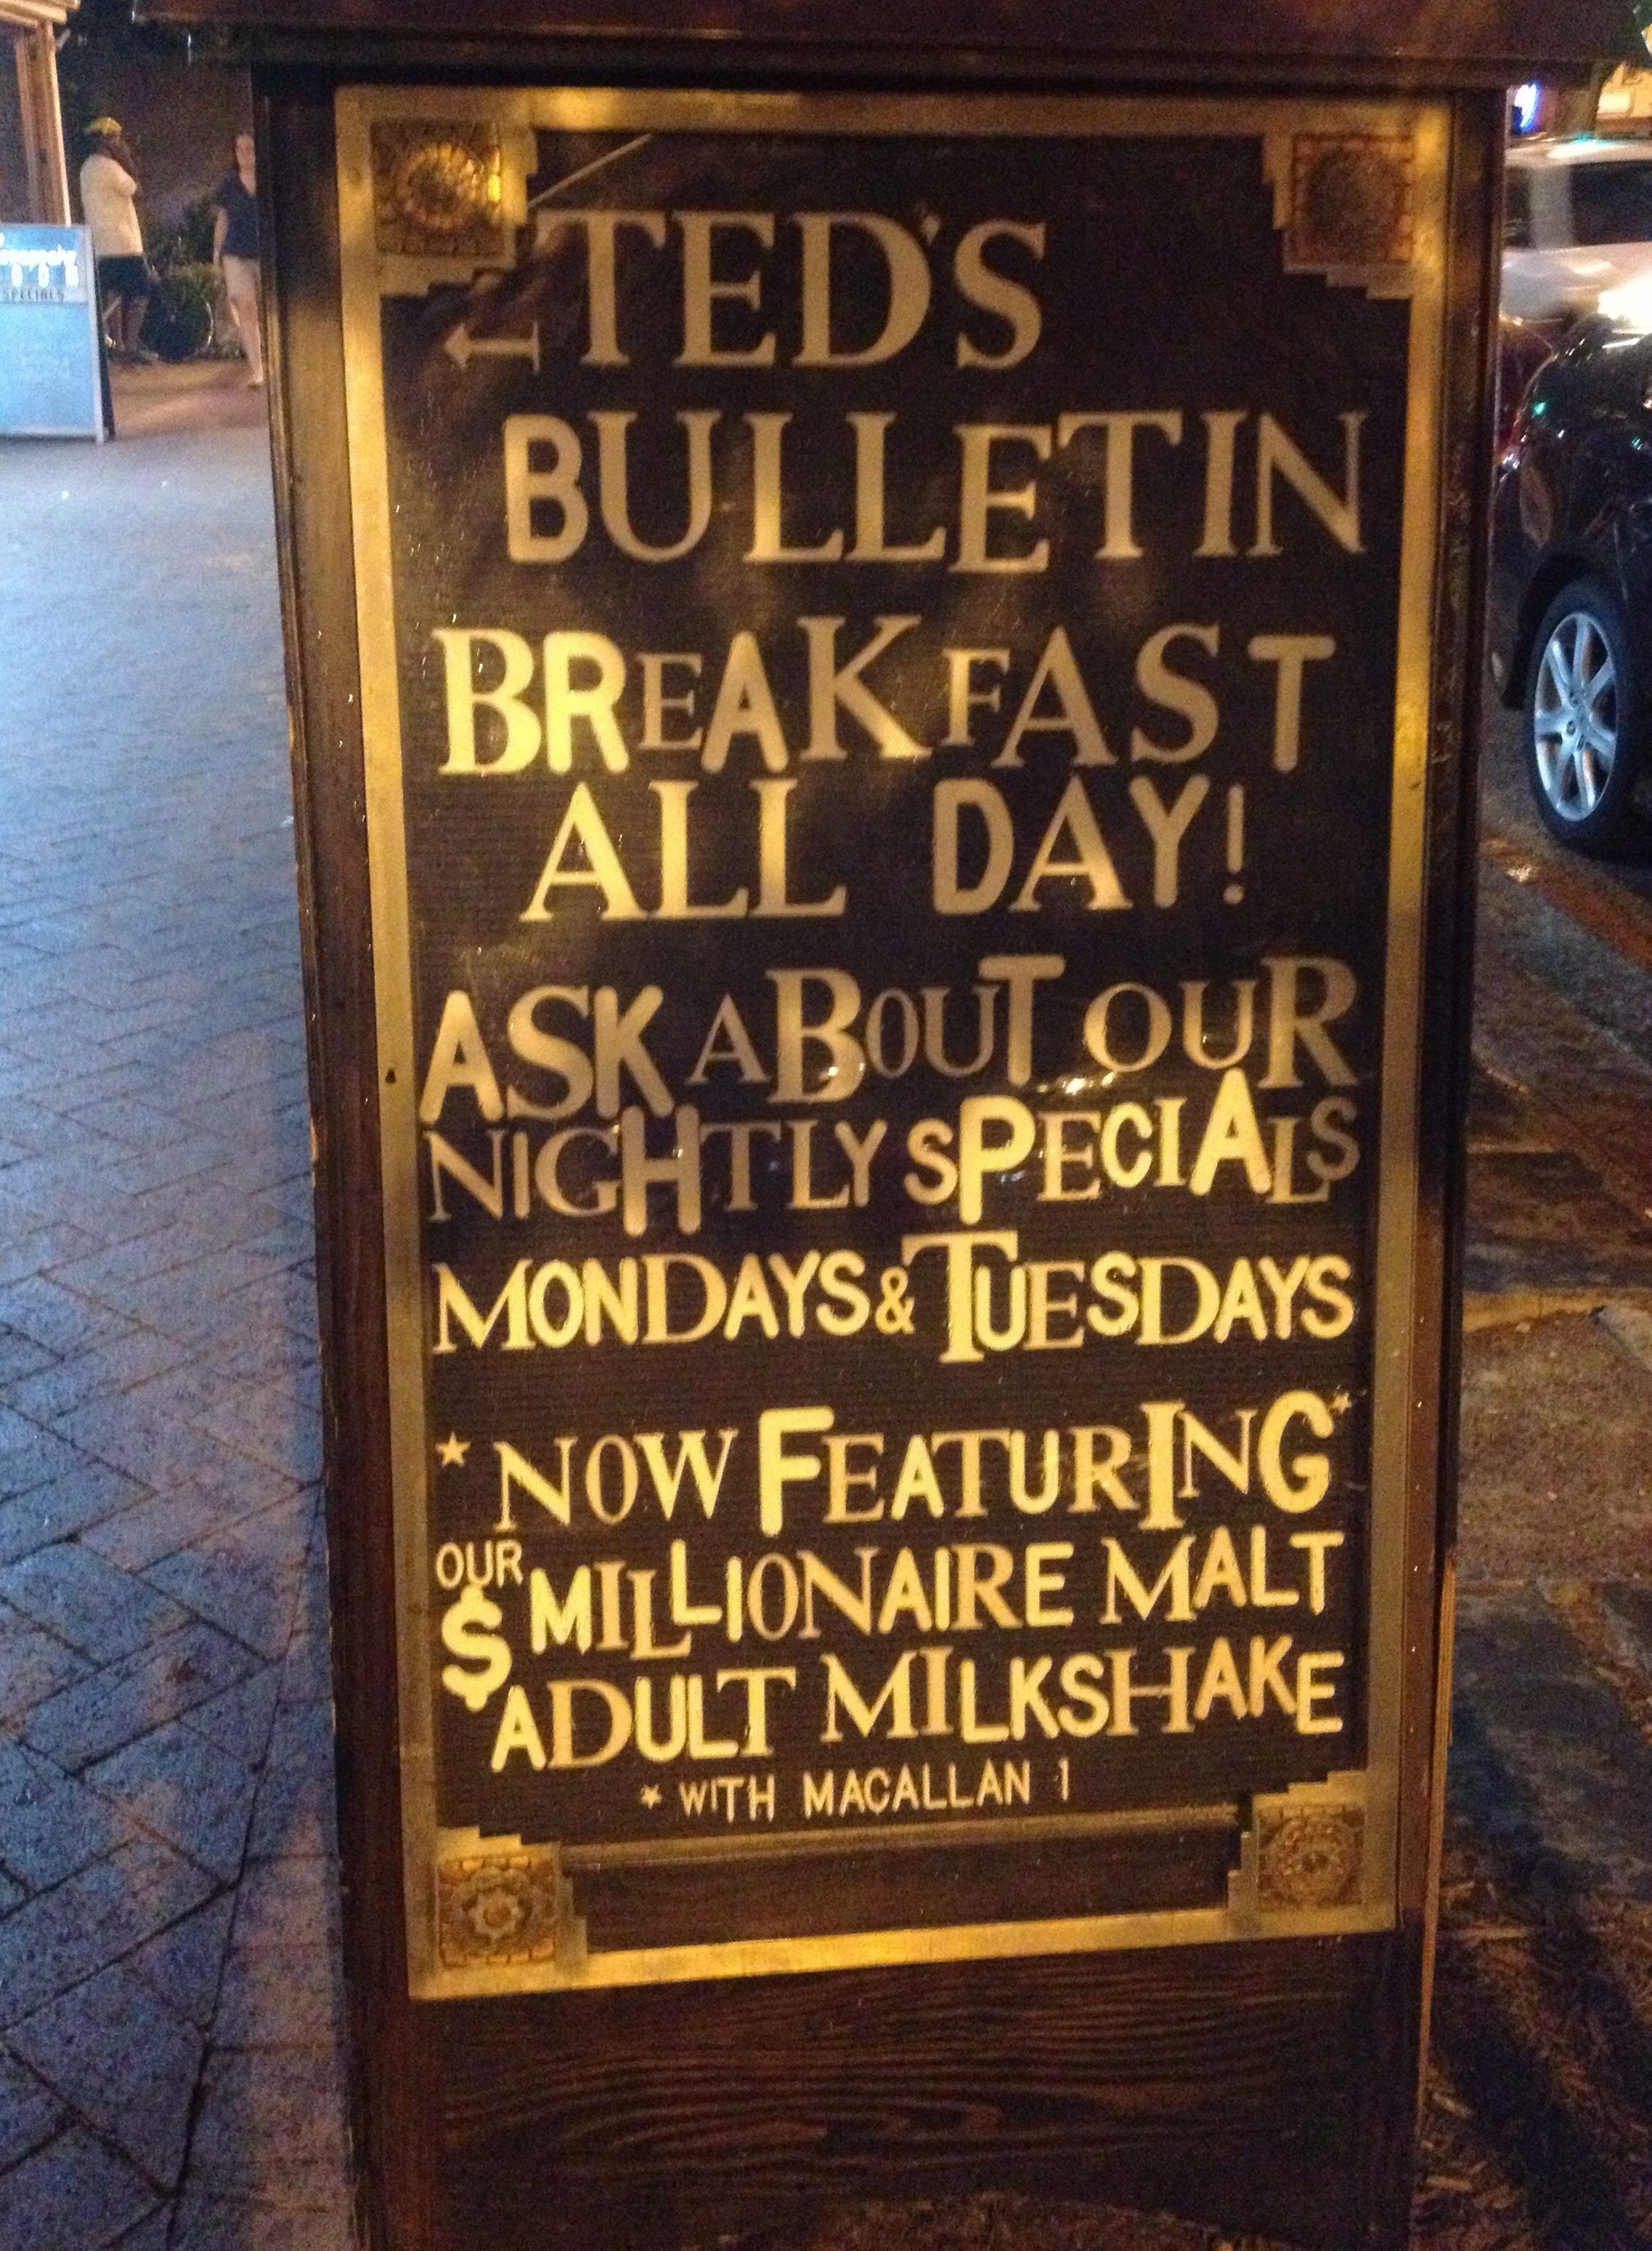 TED'S
BULLETIN
BREAKFAST
ALL DAY!
ASK ABOUT OUR
NIGHTLY SPECIALS
MONDAYS & TUESDAYS
* NOW FEATURING *
OUR
$ MILLIONAIRE MALT
ADULT MILKSHAKE
* WITH MACALLAN 1
SPECIALS